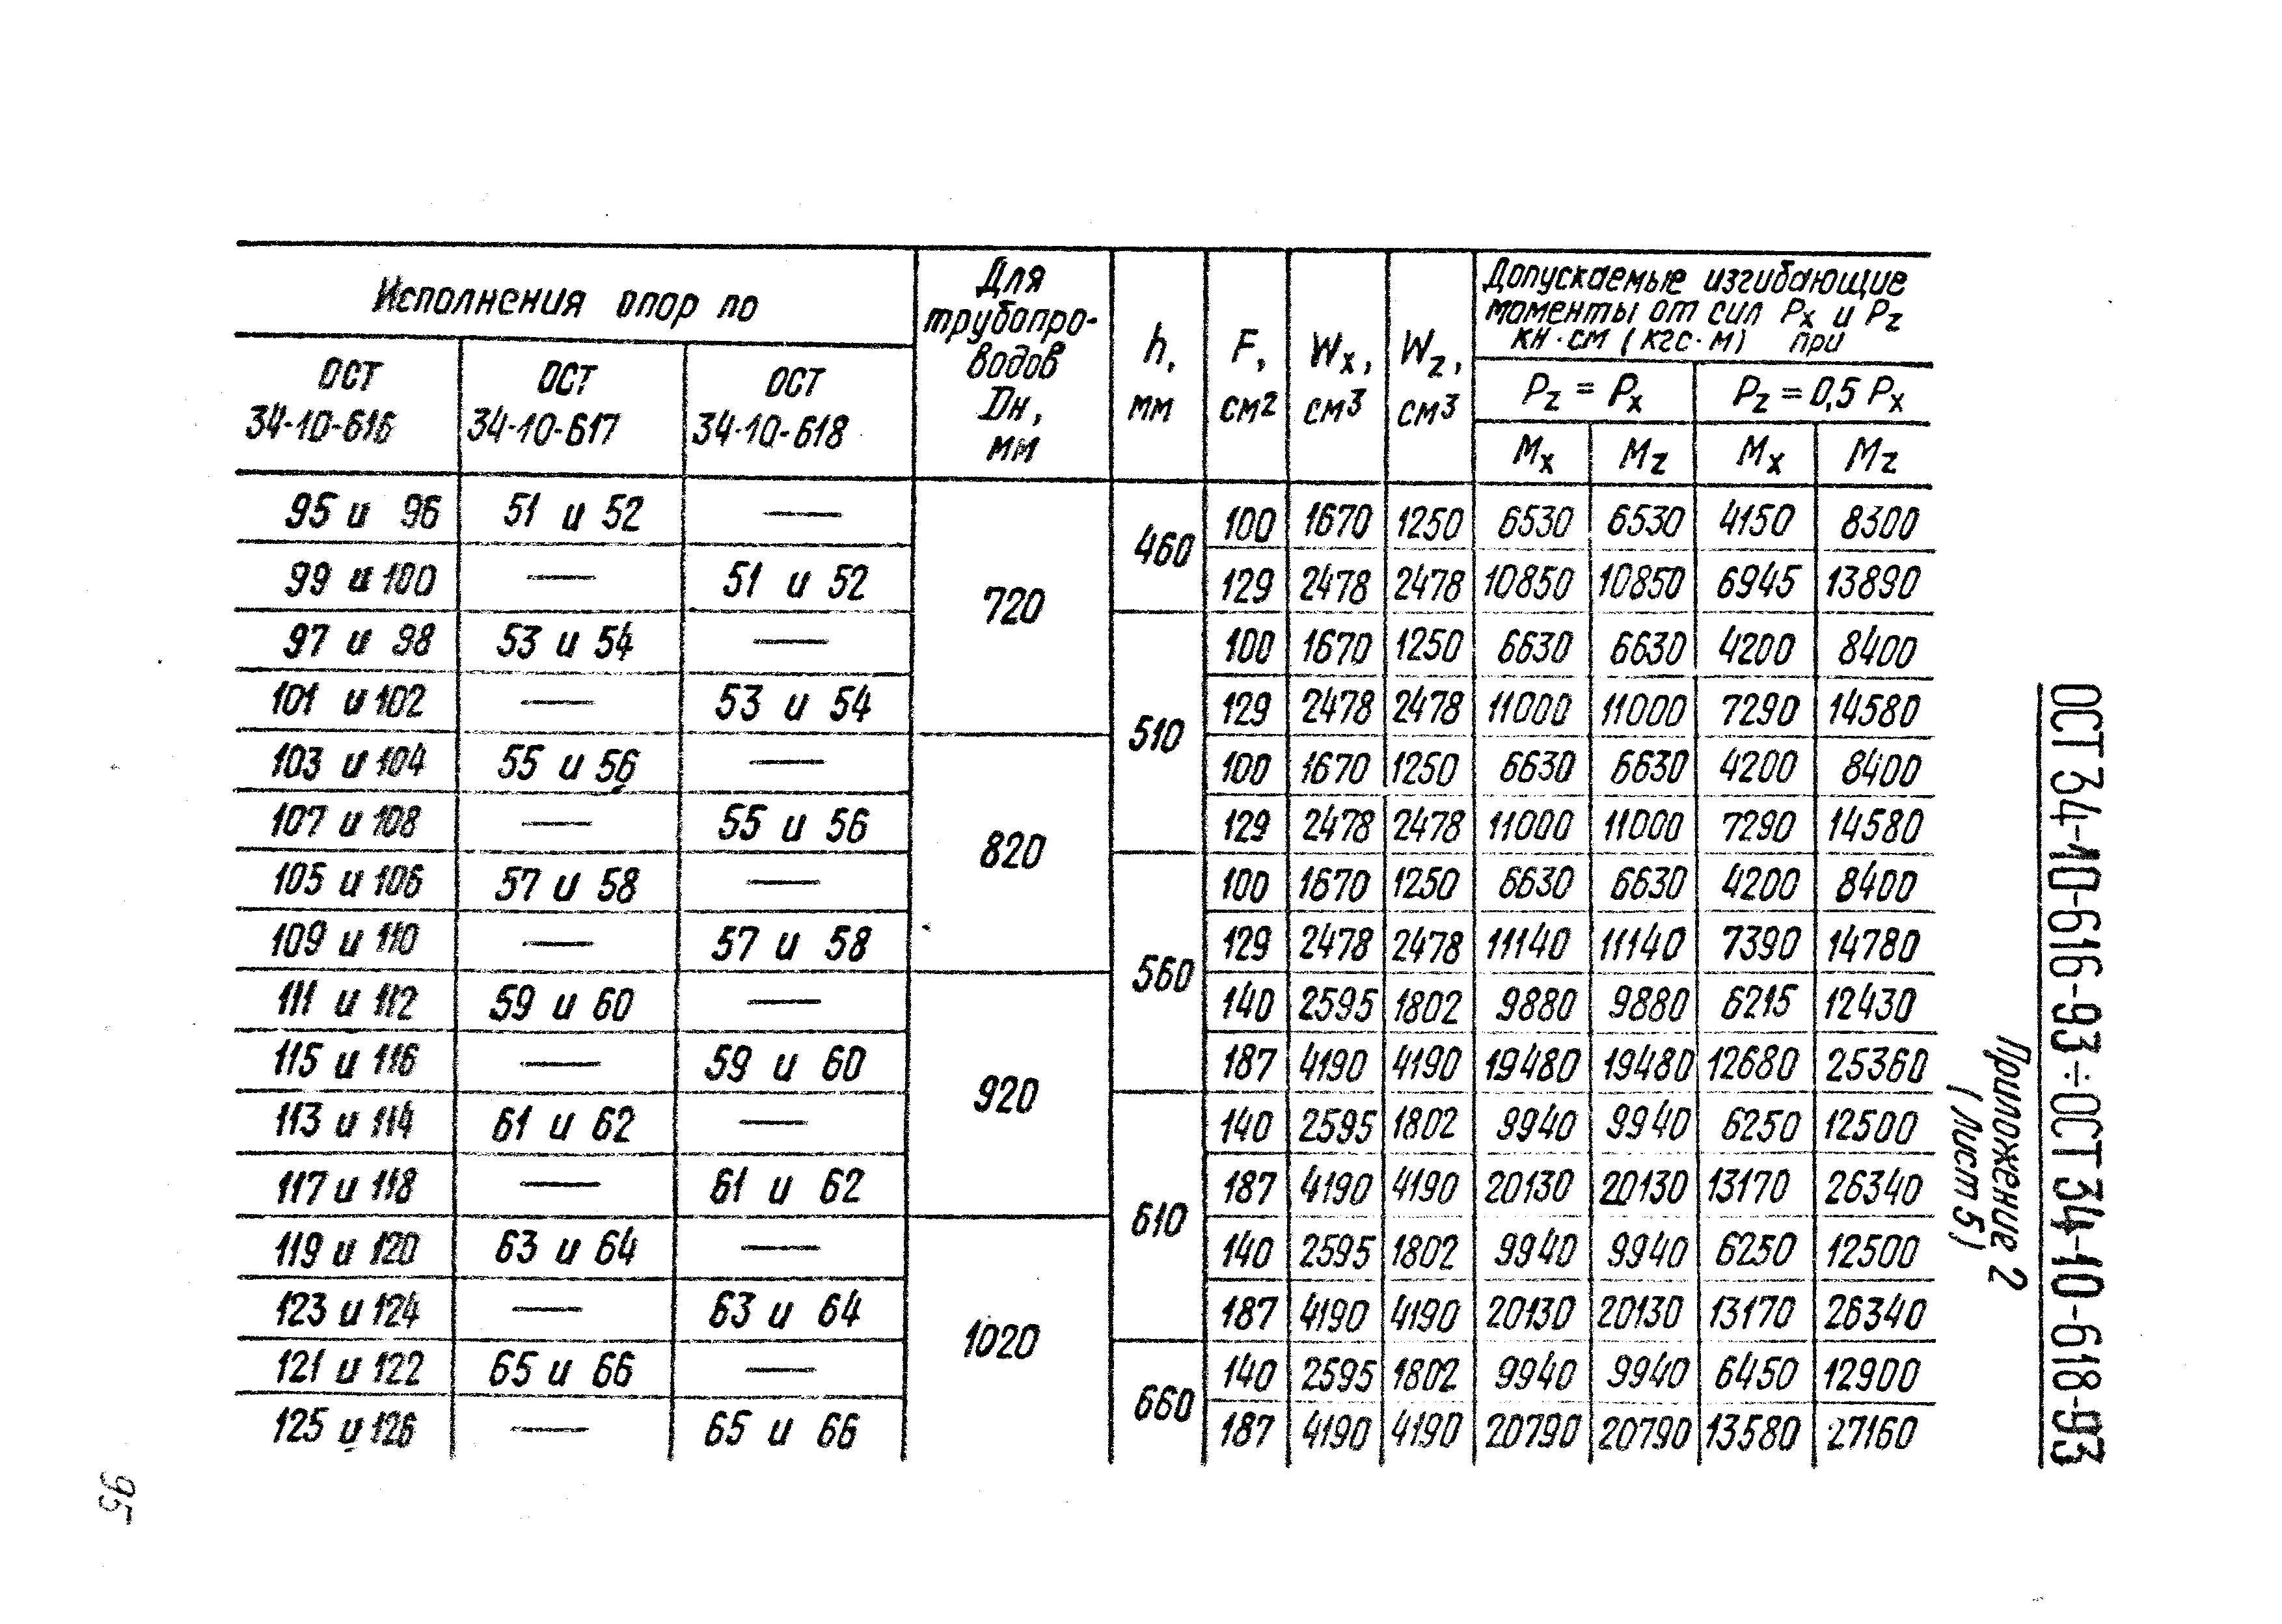 Исполнения опор по
Для трубопро-
водов
Dн,
мм
h,
мм
F,
см²
Wx,
см³
Wz,
см³
Допускаемые изгибающие
моменты от сил Px и Pz
кН·см (кгс·м) при
ОСТ
34-10-616
ОСТ
34-10-617
ОСТ
34-10-618
Pz = Px
Pz = 0,5 Px
Mx
Mz
Mx
Mz
95 и 96 51 и 52 — 720 460 100 1670 1250 6530 6530 4150 8300
99 и 100 — 51 и 52 129 2478 2478 10850 10850 6945 13890
97 и 98 53 и 54 — 510 100 1670 1250 6630 6630 4200 8400
101 и 102 — 53 и 54 129 2478 2478 11000 11000 7290 14580
103 и 104 55 и 56 — 820 100 1670 1250 6630 6630 4200 8400
107 и 108 — 55 и 56 129 2478 2478 11000 11000 7290 14580
105 и 106 57 и 58 — 560 100 1670 1250 6630 6630 4200 8400
109 и 110 — 57 и 58 129 2478 2478 11140 11140 7390 14780
111 и 112 59 и 60 — 920 140 2595 1802 9880 9880 6215 12430
115 и 116 — 59 и 60 187 4190 4190 19480 19480 12680 25360
113 и 114 61 и 62 — 610 140 2595 1802 9940 9940 6250 12500
117 и 118 — 61 и 62 187 4190 4190 20130 20130 13170 26340
119 и 120 63 и 64 — 1020 140 2595 1802 9940 9940 6250 12500
123 и 124 — 63 и 64 187 4190 4190 20130 20130 13170 26340
121 и 122 65 и 66 — 660 140 2595 1802 9940 9940 6450 12900
125 и 126 — 65 и 66 187 4190 4190 20790 20790 13580 27160
ОСТ 34-10-616-93÷ОСТ 34-10-618-93
Приложение 2
(Лист 5)
95